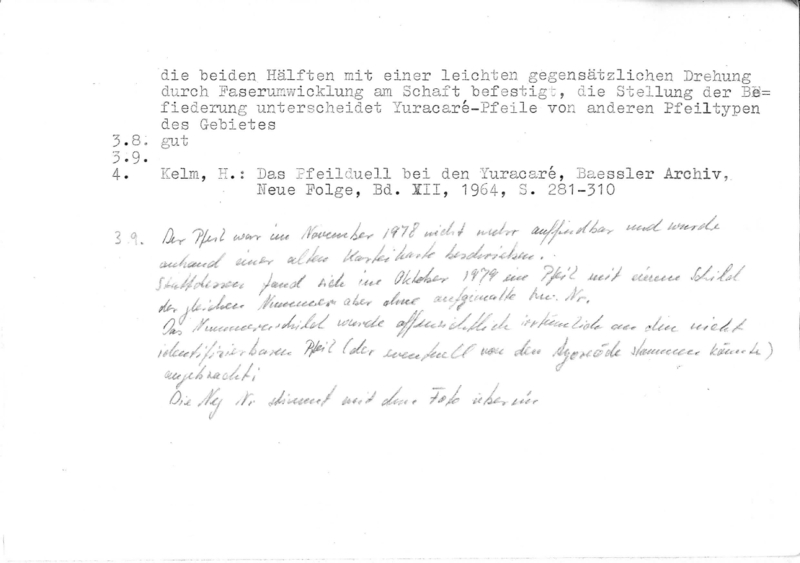 die beiden Hälften mit einer leichten gegensätzlichen Drehung
durch Faserumwicklung am Schaft befestigt, die Stellung der Be=
fiederung unterscheidet Yuracaré-Pfeile von anderen Pfeiltypen
des Gebietes
3.8. gut
3.9.
4. Kelm, H.: Das Pfeilduell bei den Yuracaré, Baessler Archiv,
Neue Folge, Bd. XII, 1964, S. 281-310
3.9. Der Pfeil war im November 1978 nicht mehr auffindbar und wurde
anhand einer alten Karteikarte beschrieben.
Stattdessen fand sich im Oktober 1979 ein Pfeil mit einem Schild
der gleichen Nummer aber ohne aufgemalte Inv. Nr.
Das Nummernschild wurde offensichtlich irrtümlich an den nicht
identifizierbaren Pfeil (der eventuell von den Ayoréode stammen könnte)
angebracht;
Die Neg Nr stimmt mit dem Foto überein